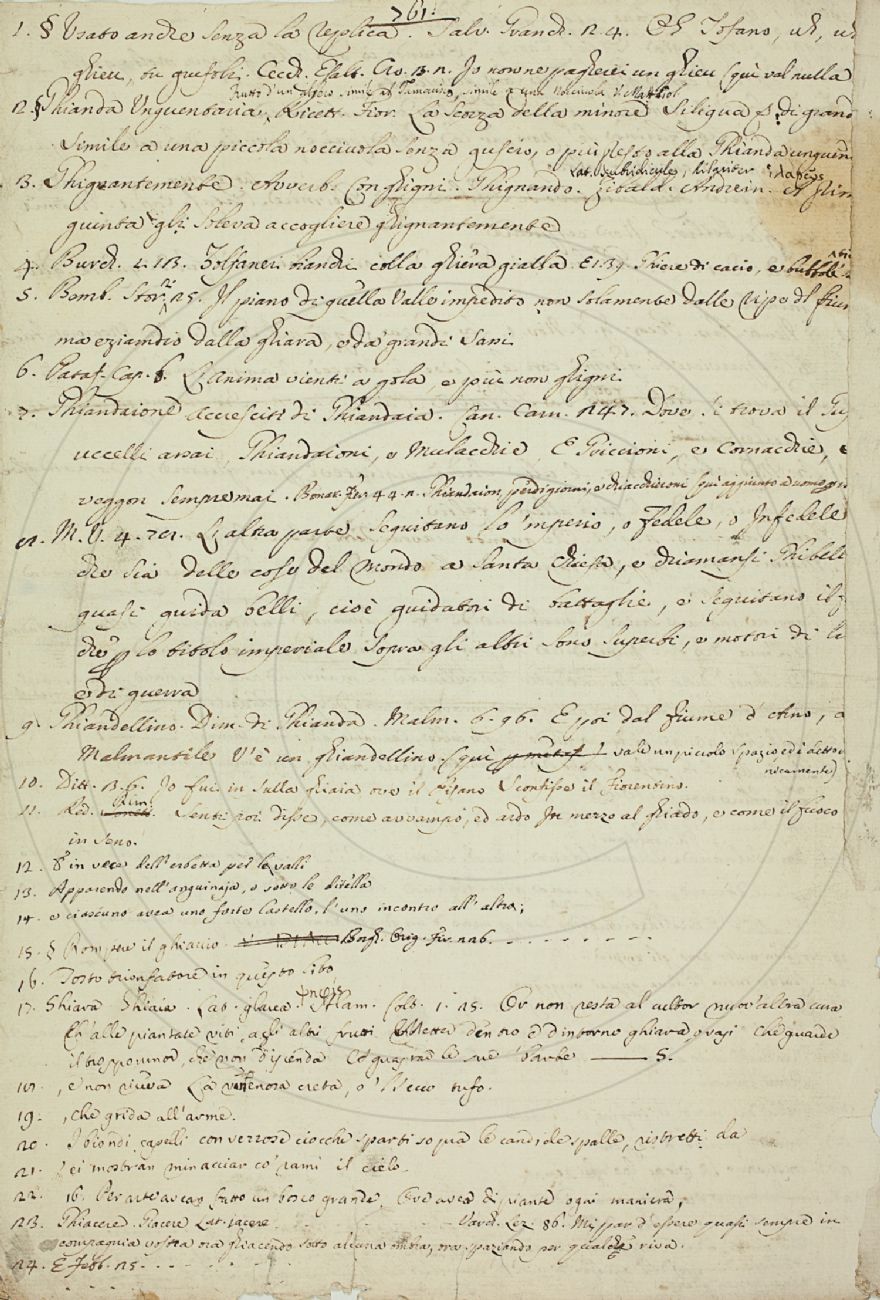 761.
1. § Usato anche senza la replica. Salv. Granch. 2. 4. Eh Tofano, uh, uh
ghieu, tu gufoli. Cecch. Esalt. Cr. 3. 2. Io non ne pagherei un ghieu (qui val nulla
Frutto d'un albero simile al Tamarisco, simile a una Nocciuola. Mattiol
2. § Ghianda Unguentaria. Ricett. Fior. La Scorza della minore Siliqua di grand
simile a una piccola nocciuola senza guscio, o più presto alla Ghianda unguen
Lat. subridicule,
3. Ghignantemente. Avverb. Con ghigni. Ghignando. Andrein.
quinta gli soleva accogliere ghignantemente
4. Burch. 1. 113. Zolfaneri bandi colla ghiera gialla. E 1. 39 Ghiere di cacio, e
5. Bemb. Stor. 25. Il piano di quella Valle impedito non solamente dalle ripe del fium
ma eziamdio dalla ghiara, e da' grandi Sassi.
6. Pataf. Cap. 8. L'anima vienti a gola e più non ghigni.
7. Ghiandaione accresciti. di Ghiandaia. Can. Carn. 247. Dove si trova il
uccelli assai, Ghiandaioni, e Mulacchie, E Piccioni, e Cornacchie, e
veggon sempremai. Buonar. Fier. 4. 4. 2. Ghiandaion, perdigiorni, e chiacchieroni (qui aggiunto a uomo
M. V. 4. L'altra parte seguitano lo 'mperio, o fedele, o Infedele
che sia delle cose del Mondo a Santa Chiesa, e chiamansi Ghibell
quasi guida belli, cioè guidatori di battaglie, e seguitano il f
che lo titolo imperiale sopra gli altri sono superbi, e motori di li
e di guerra
9. Ghiandellino. Dim. di Ghianda. Malm. 6. 96. E poi dal fiume d'Arno, a
Malmantile V'è un ghiandellino (qui vale un piccolo spazio, ed è detto
nicamente)
10. Ditt. 3. 6. Io fui in sulla ghiaia ove il Pisano Sconfisse il Fiorentino.
11. Red. Rim. Senti poi disse, come avvampo, ed ardo In mezzo al ghiado, e come il fuoco
in seno.
12. E in vece dell'erbetta per le valli
13. Apparendo nell'anguinaja, o sotto le ditella
14. e ciascuno avea uno forte Castello, l'uno incontro all'altro;
15. § Rompere il ghiaccio. Borgh. Orig. Fir. 226. - - - - - - -
16. Tosto trionfatore in questo sito
17. Ghiara Ghiaia. Lat. glarea. Alam. Colt. 1. 25. Or non resta al cultor nuov'altra cura
Ch'alle piantate viti, agli altri frutti Metter dentro e d'intorno ghiara, o vasi Che guarde
il troppo umor, che non discenda Ed guastar le sue barbe —— S.
, e non viva La venenosa creta, o 'l secco tufo.
19. , che grida all'arme.
20. I biondi capelli con vezzose ciocche sparti sopra le candide spalle, ristretti da
21. Lei mostran minacciar co' rami il cielo.
22. 16. Per arte avean fatto un bosco grande, Ove avea di piante ogni maniera;
23. Ghiacere. Giacere. Lat. jacere. - - - Varch. Lez. 86. Mi par d'essere quasi sempre in
compagnia vostra ora ghiacendo sotto alcuna ombra, ora spaziando per qualche riva.
24. E Febb. 25. - - - - -